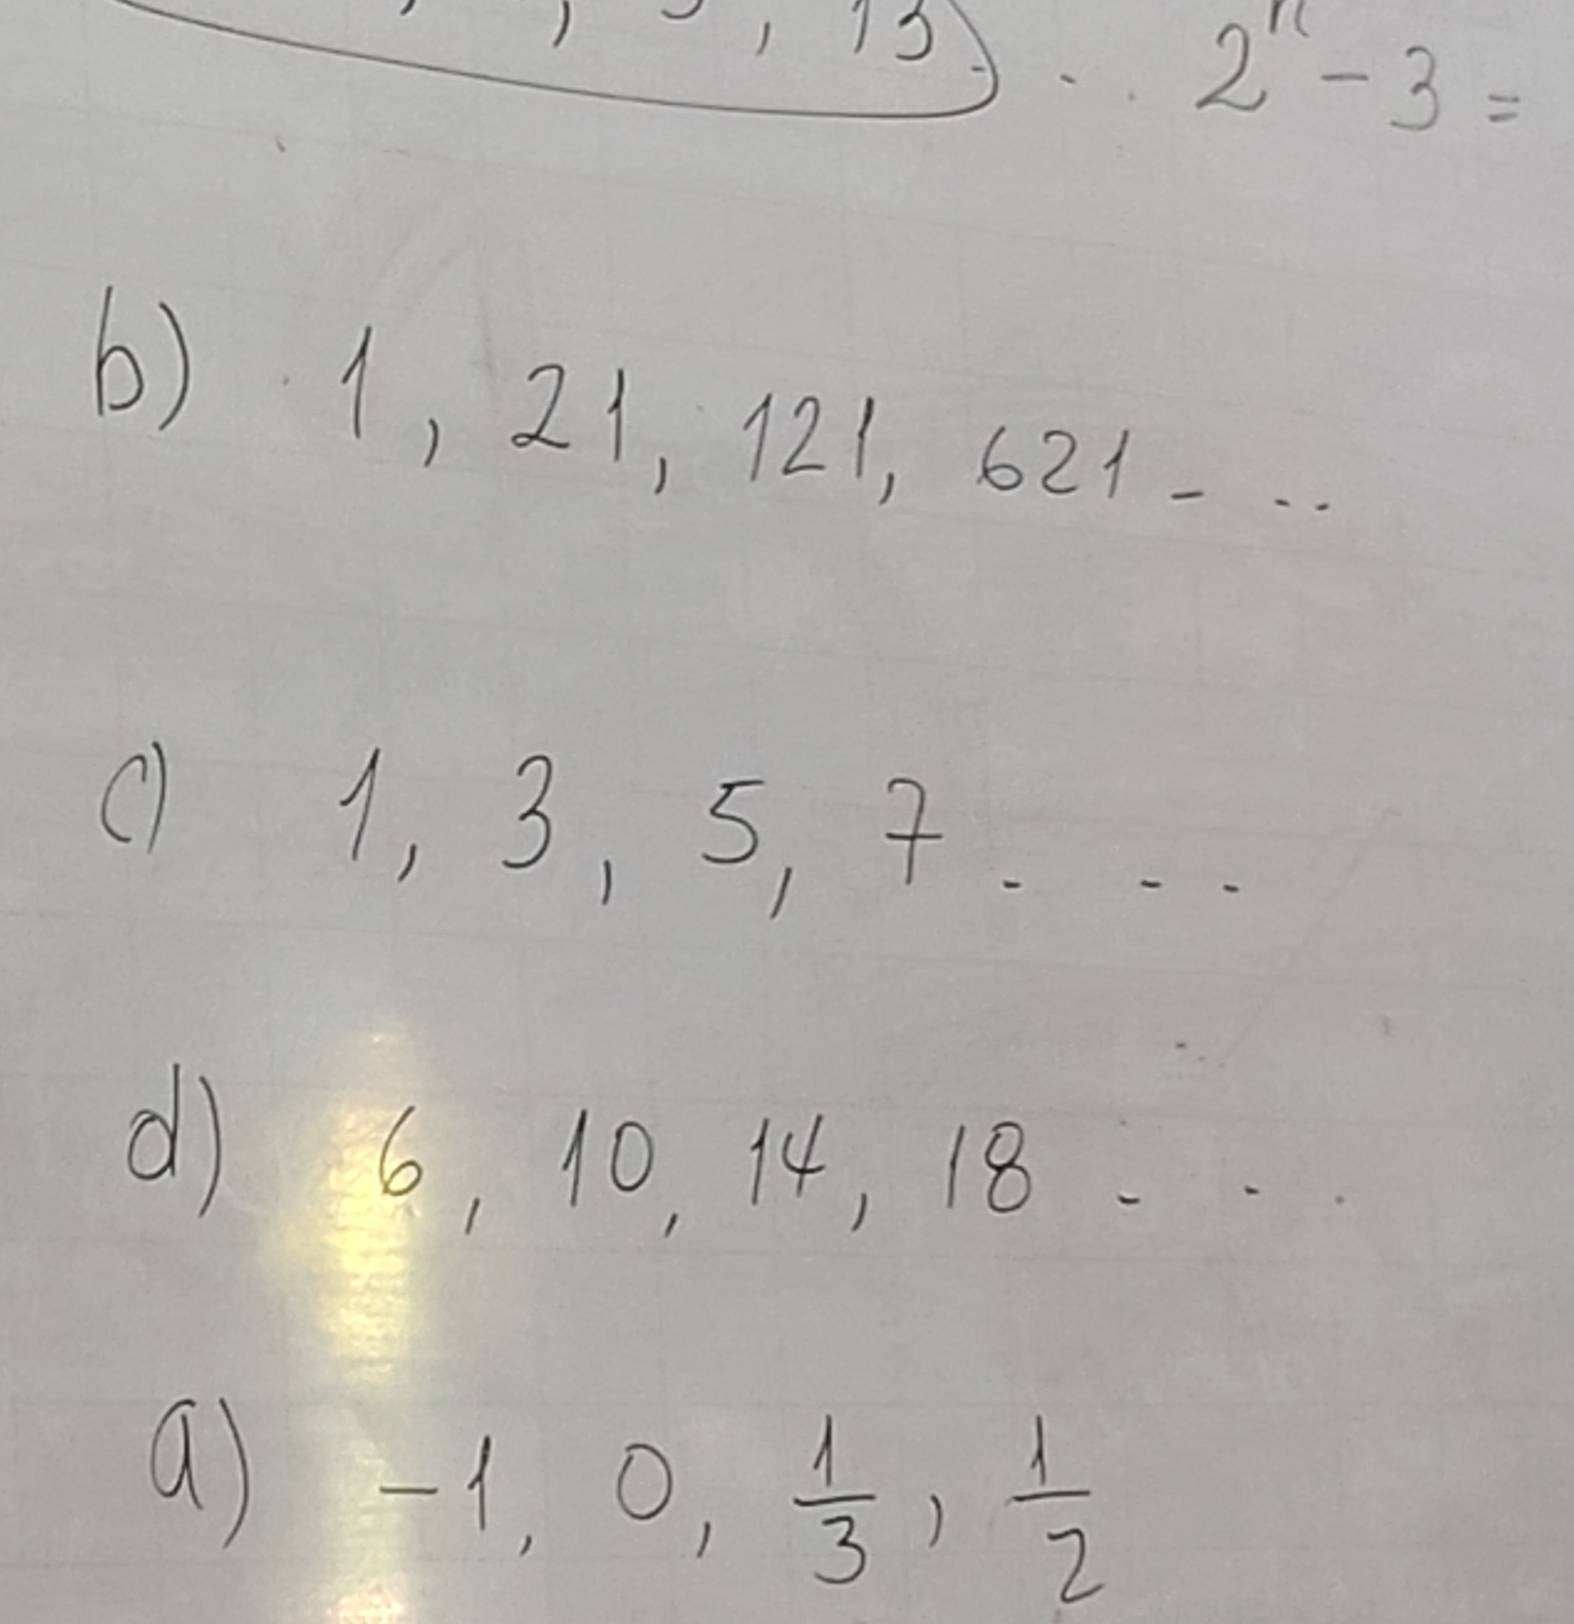 , , , 13) . . 2ⁿ - 3 =
b) 1, 21, 121, 621 - ..
c) 1, 3, 5, 7 . . .
d) 6, 10, 14, 18 . . .
a) -1, 0, 1/3, 1/2